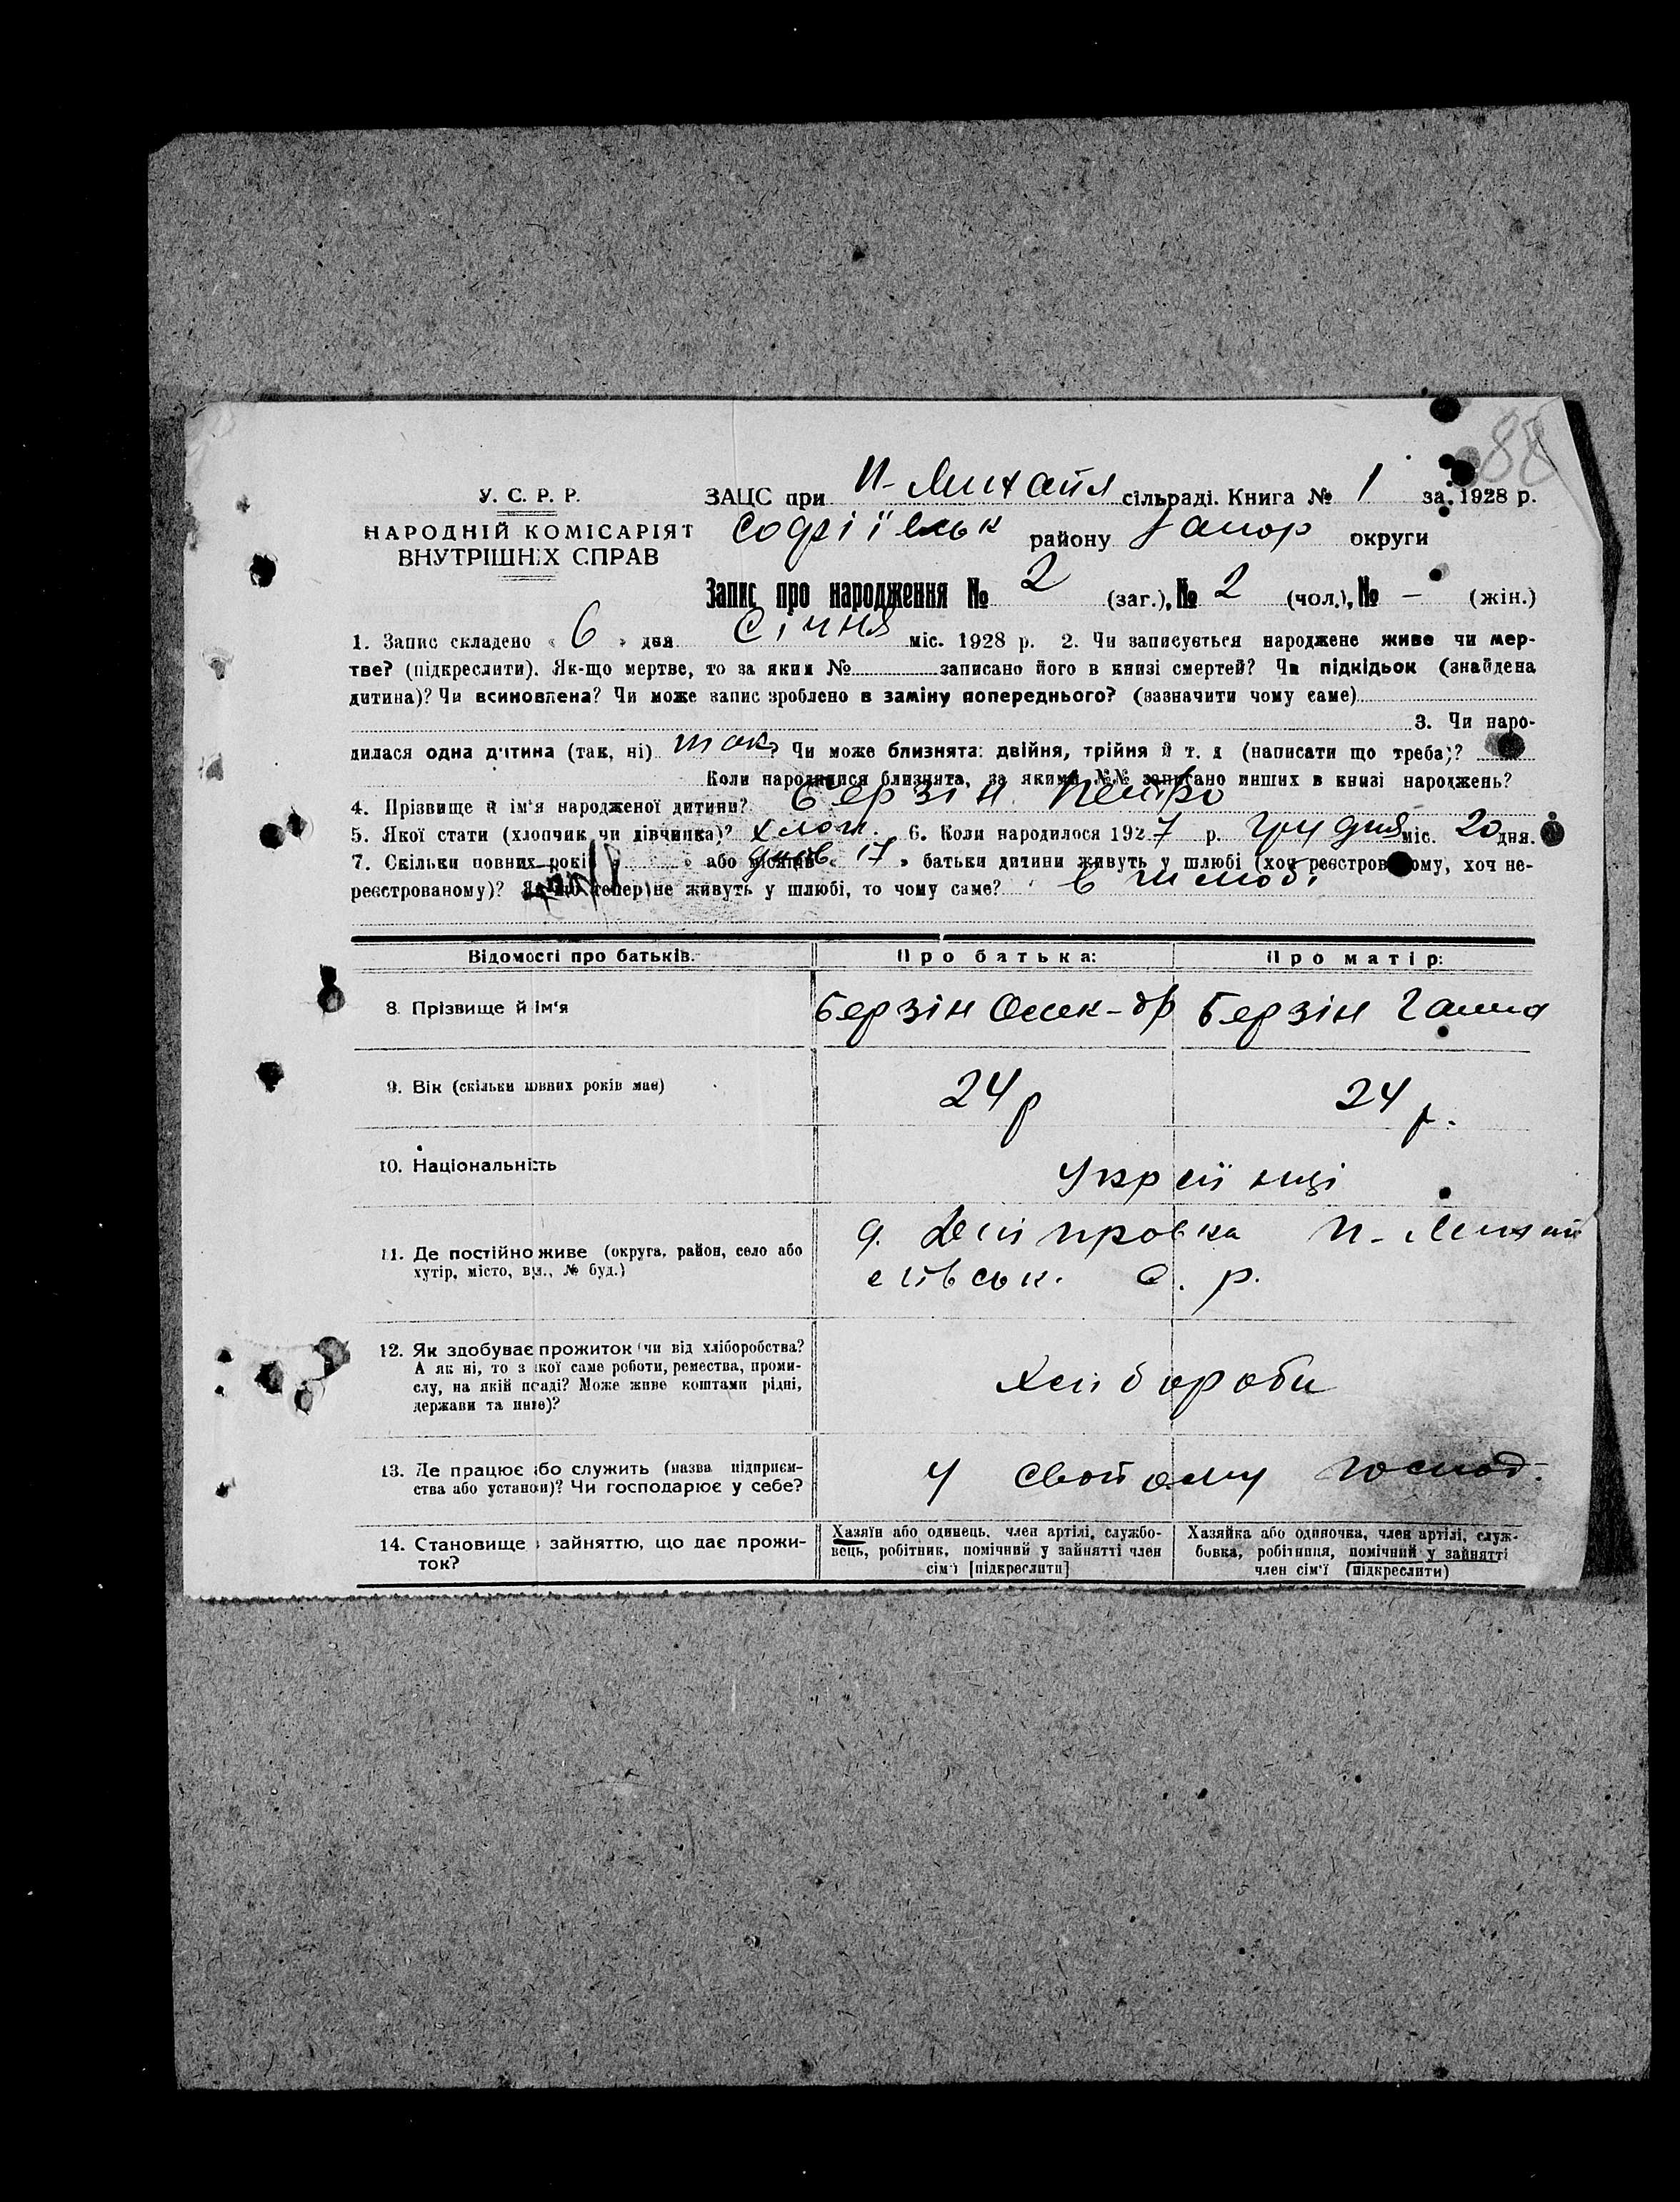 88
У. С. Р. Р.
НАРОДНІЙ КОМІСАРІЯТ
ВНУТРІШНІХ СПРАВ
ЗАЦС при Н-Михайл сільраді. Книга № 1 за 1928 р.
Софіївськ району Запор округи
Запис про народження № 2 (заг.), № 2 (чол.), № – (жін.)
1. Запис складено « 6 » дня Січня міс. 1928 р. 2. Чи записується народжене живе чи мер-
тве? (підкреслити). Як-що мертве, то за яким № записано його в книзі смертей? Чи підкідьок (знайдена
дитина)? Чи всиновлена? Чи може запис зроблено в заміну попереднього? (зазначити чому саме)
3. Чи наро-
дилася одна дитина (так, ні) так? Чи може близнята: двійня, трійня й т. д (написати що треба)?
Коли народилися близнята, за якими №№ записано инших в книзі народжень?
4. Прізвище й ім'я народженої дитини? Берзін Петро
5. Якої стати (хлопчик чи дівчинка)? хлоп. 6. Коли народилося 1927 р. Грудня міс. 20 дня.
7. Скільки повних років « » або місяців днів « 17 » батьки дитини живуть у шлюбі (хоч реєстрованому, хоч не-
реєстрованому)? Як-що тепер не живуть у шлюбі, то чому саме? в шлюбі
Відомості про батьків. Про батька: Про матір:
8. Прізвище й ім'я Берзін Олек-др Берзін Ганна
9. Вік (скільки повних років має) 24 р 24 р.
10. Національність Українці
11. Де постійно живе (округа, район, село або
хутір, місто, вул., № буд.)
д. Дніпровка Н-Михай
лівськ. с. р.
12. Як здобуває прожиток (чи від хліборобства?
А як ні, то з якої саме роботи, ремества, проми-
слу, на якій посаді? Може живе коштами рідні,
держави та инше)?
Хлібороби
13. Де працює або служить (назва підприєм-
ства або установи)? Чи господарює у себе?
У свойому господ.
14. Становище в зайняттю, що дає прожи-
ток?
Хазяїн або одинець, член артілі, службо-
вець, робітник, помічний у зайнятті член
сім'ї [підкреслити]
Хазяйка або одиночка, член артілі, служ-
бовка, робітниця, помічний у зайнятті
член сім'ї (підкреслити)